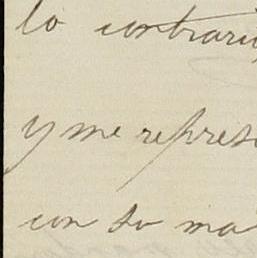 lo contrari
y me repres
con su ma